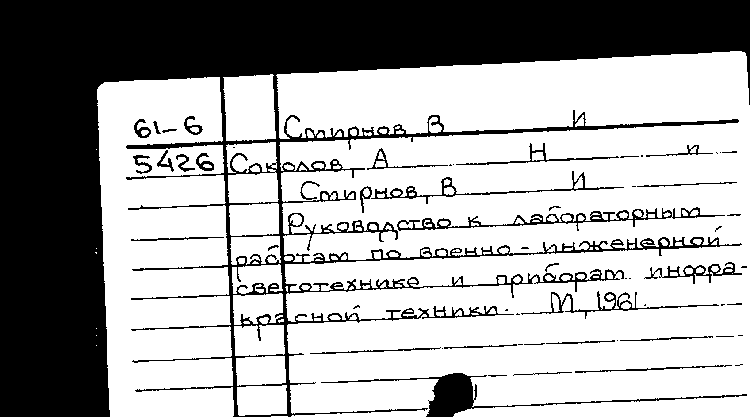 61-6 Смирнов, В И
5426 Соколов, А Н и
Смирнов, В И
Руководство к лабораторным
работам по военно-инженерной
светотехнике и приборам инфра-
красной техники. М., 1961.